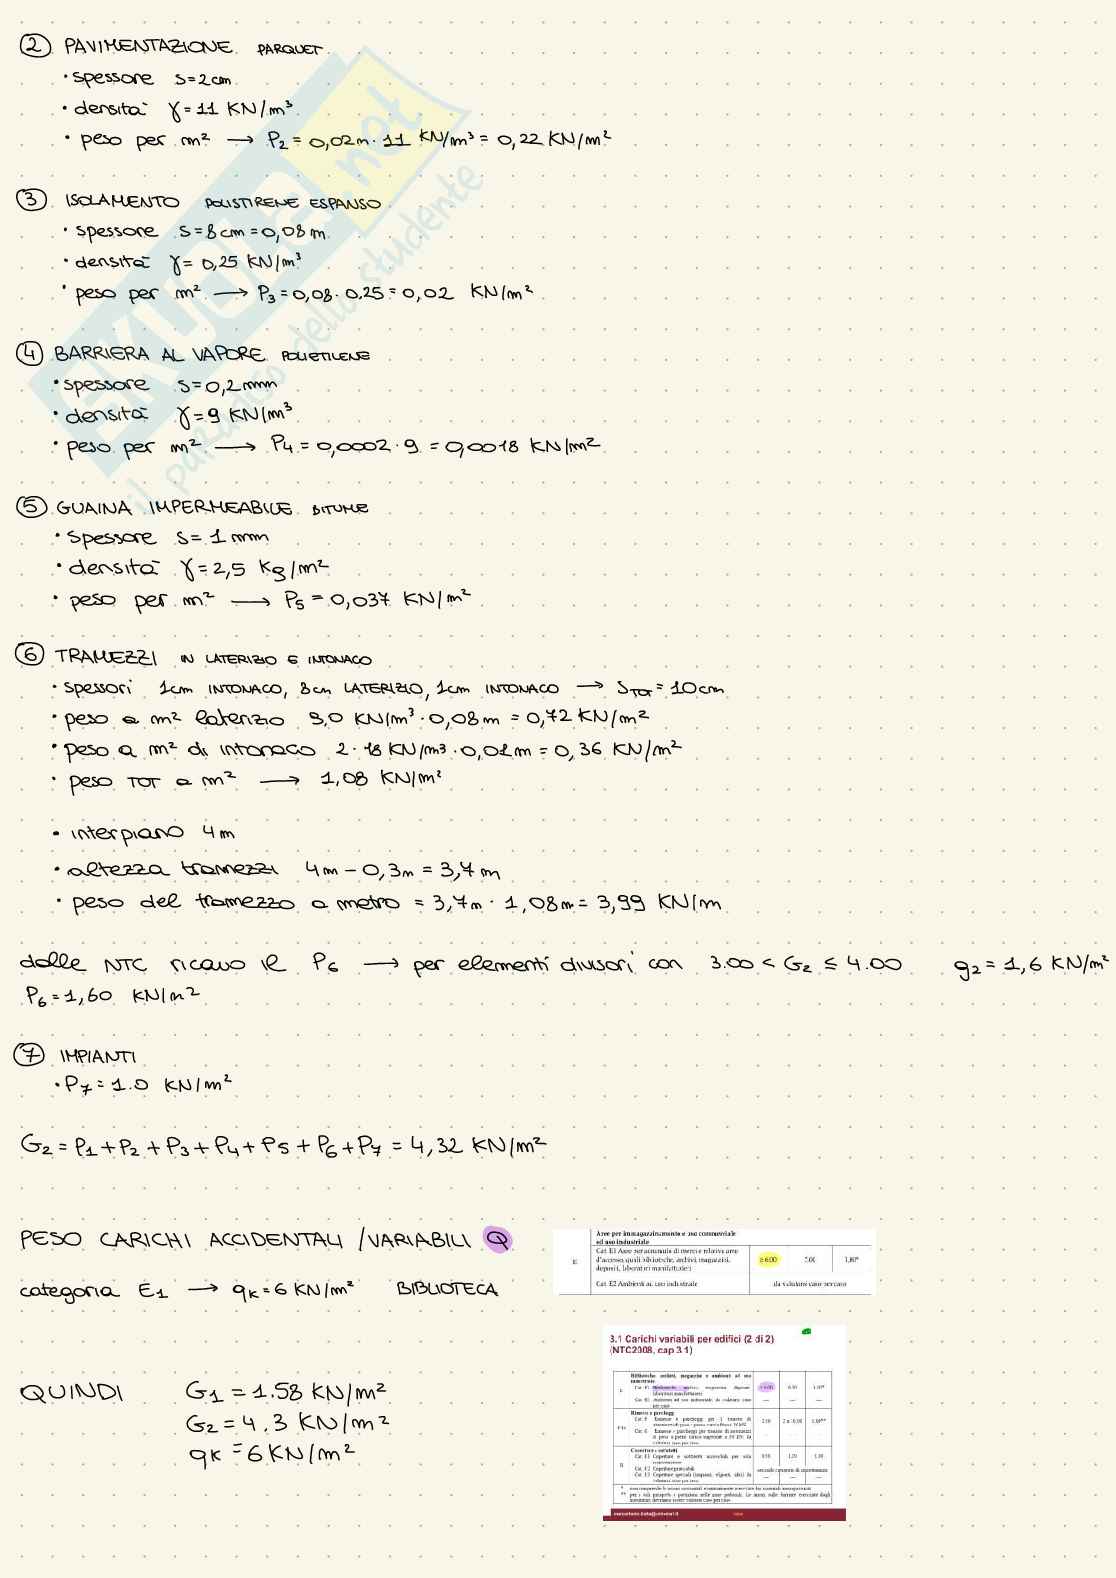 ② PAVIMENTAZIONE PARQUET
• spessore s=2cm
• densità γ=11 KN/m³
• peso per m² → P₂=0,02m·11 KN/m³=0,22 KN/m²
③ ISOLAMENTO POLISTIRENE ESPANSO
• spessore s=8cm=0,08m
• densità γ=0,25 KN/m³
• peso per m² → P₃=0,08·0,25=0,02 KN/m²
④ BARRIERA AL VAPORE POLIETILENE
• spessore s=0,2mm
• densità γ=9 KN/m³
• peso per m² → P₄=0,0002·9=0,0018 KN/m²
⑤ GUAINA IMPERMEABILE BITUME
• spessore s=1mm
• densità γ=2,5 Kg/m²
• peso per m² → P₅=0,037 KN/m²
⑥ TRAMEZZI IN LATERIZIO E INTONACO
• spessori 1cm INTONACO, 8cm LATERIZIO, 1cm INTONACO → S_TOT=10cm
• peso a m² laterizio 9,0 KN/m³·0,08m=0,72 KN/m²
• peso a m² di intonaco 2·18 KN/m³·0,01m=0,36 KN/m²
• peso TOT a m² → 1,08 KN/m²
• interpiano 4m
• altezza tramezzi 4m-0,3m=3,7m
• peso del tramezzo a metro = 3,7m·1,08m=3,99 KN/m
dalle NTC ricavo il P₆ → per elementi divisori con 3.00<G₂≤4.00 g₂=1,6 KN/m²
P₆=1,60 KN/m²
⑦ IMPIANTI
• P₇=1.0 KN/m²
G₂=P₁+P₂+P₃+P₄+P₅+P₆+P₇=4,32 KN/m²
PESO CARICHI ACCIDENTALI/VARIABILI Q
categoria E1 → qk=6 KN/m² BIBLIOTECA
Aree per immagazzinamento e uso commerciale
ed uso industriale
E
Cat. E1 Aree per accumulo di merci e relative aree
d'accesso, quali biblioteche, archivi, magazzini,
depositi, laboratori manifatturieri
≥ 6,00 7,00 1,00*
Cat. E2 Ambienti ad uso industriale da valutarsi caso per caso
3.1 Carichi variabili per edifici (2 di 2)
(NTC2008, cap 3.1)
QUINDI G₁=1.58 KN/m²
G₂=4.3 KN/m²
qk=6 KN/m²
SKUOLA.net
il paradiso dello studente